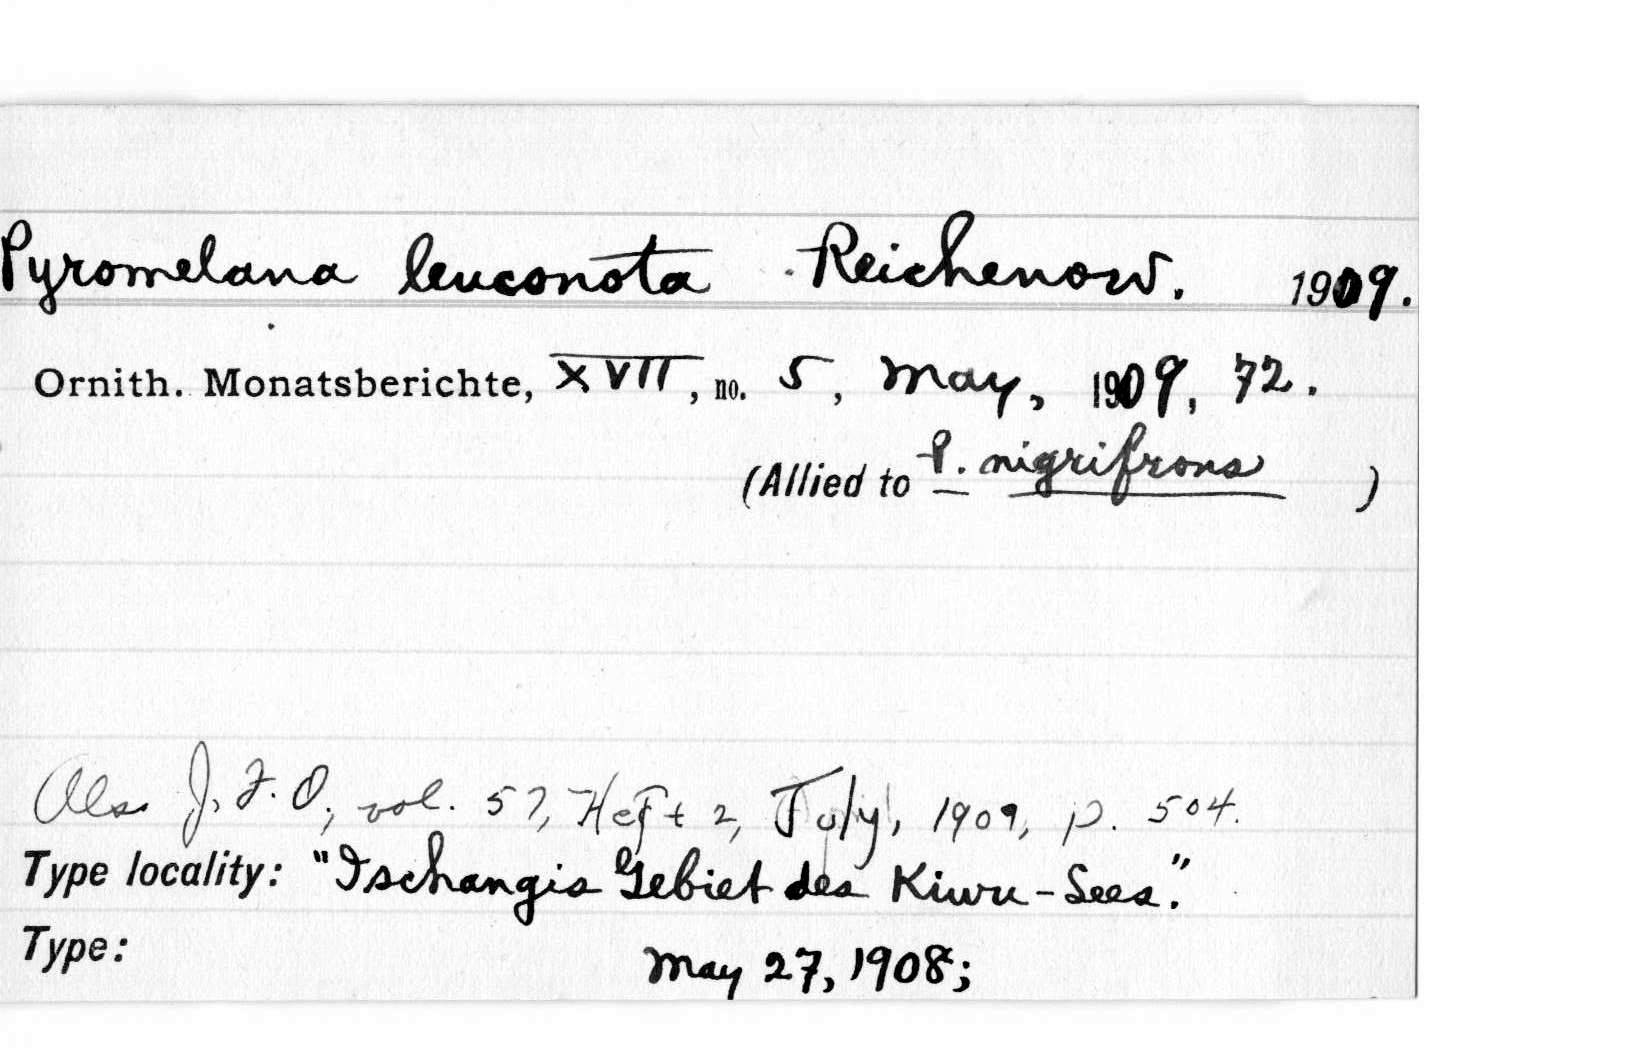 Pyromelana leuconota Reichenow. 1909.
Ornith. Monatsberichte, XVII, no. 5, May, 1909, 72.
(Allied to P. nigrifrons )
Also J. F. O., vol. 57, Heft 2, July, 1909, p. 504.
Type locality: "Ischangis Gebiet des Kiwu-Sees."
Type: May 27, 1908;